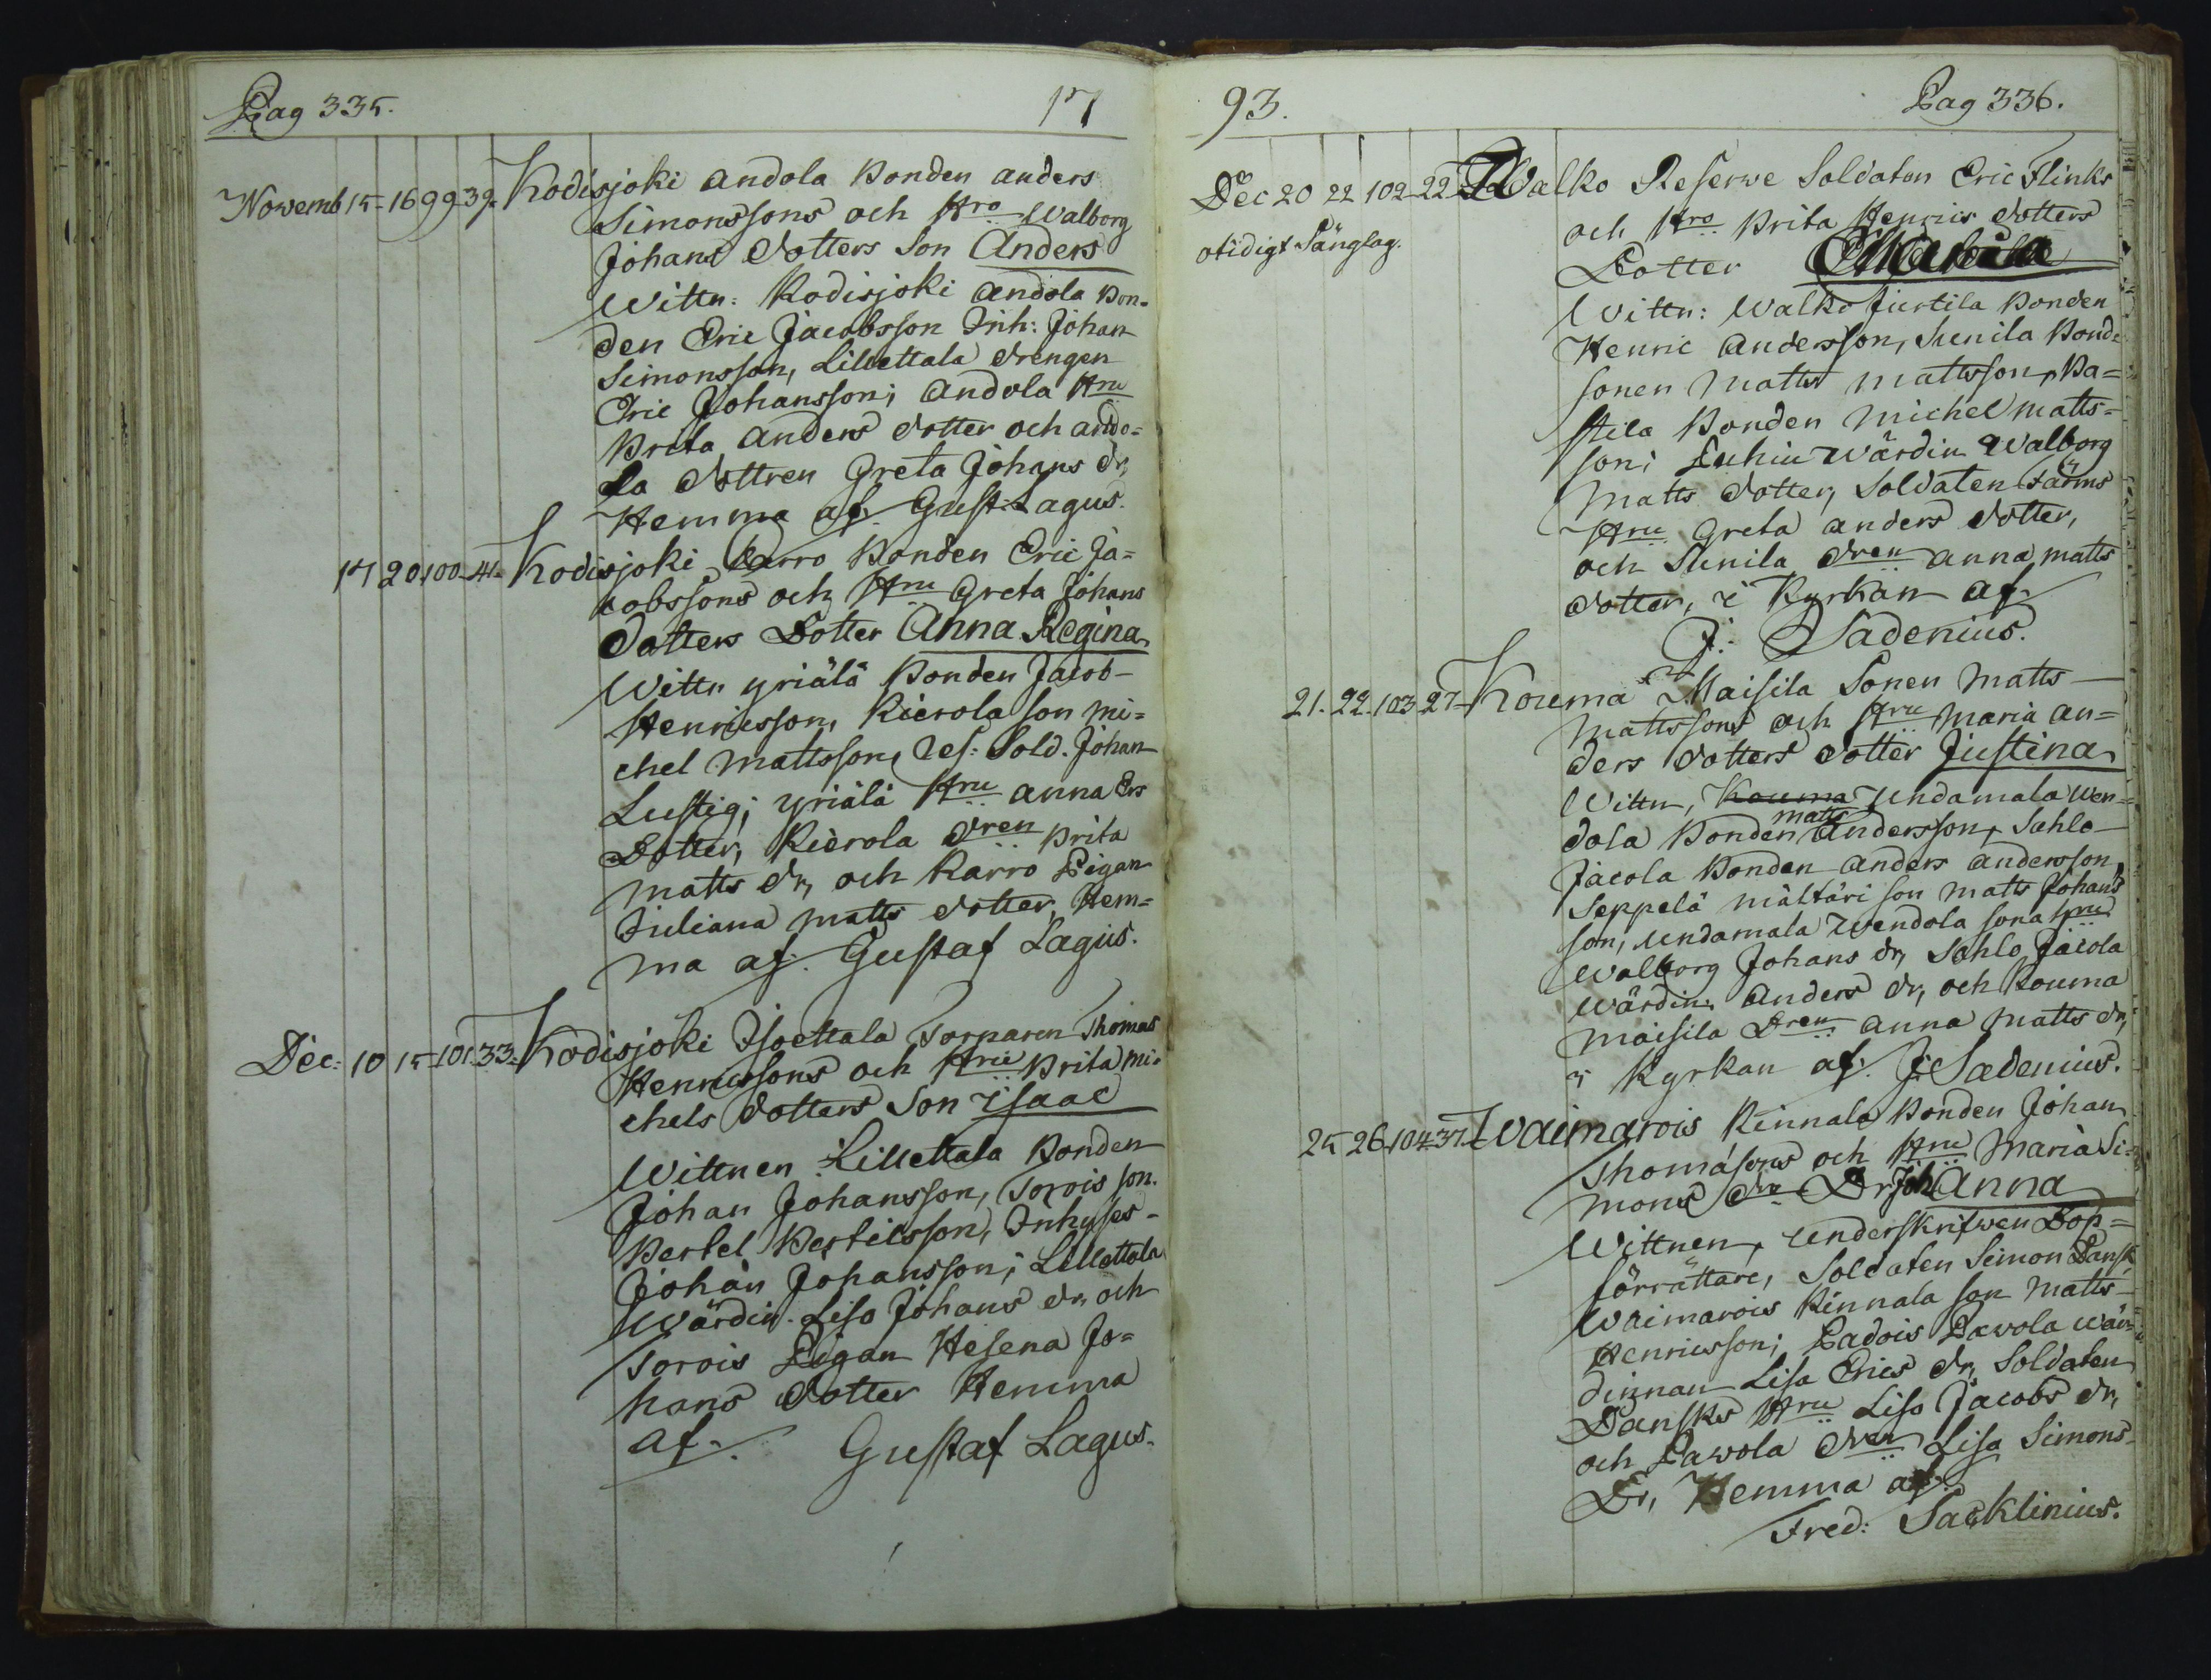 Pag 335. 17
Novemb 15-16 99 39. Kodisjoki Andola Bonden Anders
Simonssons och Hro Walborg
Johans dotters Son Anders
Wittn: Kodisjoki Andola Bon-
den Eric Jacobsson Inh: Johan
Simonsson, Lillettala drengen
Eric Johansson; Andola Hru
Brita Anders dotter och Ando-
la dottren Greta Johans dr,
Hemma af Gust. Lagus.
17 20 100-41- Kodisjoki Karro Bonden Eric Ja=
cobssons och Hru Greta Johans
dotters Dotter Anna Regina
Wittn yriälä Bonden Jacob-
Henricsson, Kierola son Mi=
chel Mattsson, res: Sold. Johan
Lustig; yriälä Hru Anna Ers
Dotter, Kierola dren Brita
Matts dr, och Karro Pigan
Juliana Matts dotter, Hem=
ma af. Gustaf Lagus.
Dec: 10 15-101.33- Kodisjoki Isoettala Torparen Thomas
Henricssons och Hru Brita Mi-
chels dotters Son Isaac
Wittnen Lillettala Bonden
Johan Johansson, Torois son.
Bertel Bertilsson, Inhyses-
Johan Johansson; Lillettala
Wärdin. Lisa Johans dr, och
Torois Pigan Helena Jo=
hans dotter Hemma
af. Gustaf Lagus.
93. Pag 336.
Dec 20 22 102-22- Walko Reserwe Soldaten Eric Flinks
och Hro Brita Henrics dotters
otidigt Sänglag.
Dotter Maria
Wittn: Walko Jurtila Bonden
Henric Andersson, Sunila Bond=
sonen Matts Mattsson, Ka=
stila Bonden Michel Matts=
son; Luhin Wärdin Walborg
Matts dotter, Soldaten Färms
Hru Greta Anders dotter,
och Sunila dren Anna Matts
dotter, i Kyrkan af
J: Sadenius.
21. 22. 103 27- Kouma Maisila Sonen Matts-
Mattssons och Hru Maria An=
ders dotters dotter Justina
Wittn, Kouma Undamala Wen=
matts
dola Bonden Andersson, Sahlo-
Jacola Bonden Anders Andersson,
Seppelä mältäri son Matts Johans
son, Undamala Wendola sona Hru
Walborg Johans dr, Sahlo Jacola
Wärdin Anders dr, och Kouma
Maisila Dren Anna Matts dr,
i Kyrkan af. J: Sadenius.
25 26 104 37- Waimarois Kinnala Bonden Johan
Thomasons och Hru Maria Si-
mons drs Dr Joh Anna
Wittnen, underskrifwen Dop=
förrättare, Soldaten Simon Dansk
Waimarois Kinnala son Matts-
Henricsson; Ladois Pawola Wär-
dinnan Lisa Erics dr, Soldaten
Dansks Hru Lisa Jacobs dr,
och Pawola dren Lisa Simons-
Dr, Hemma af.
Fred: Sacklinius.